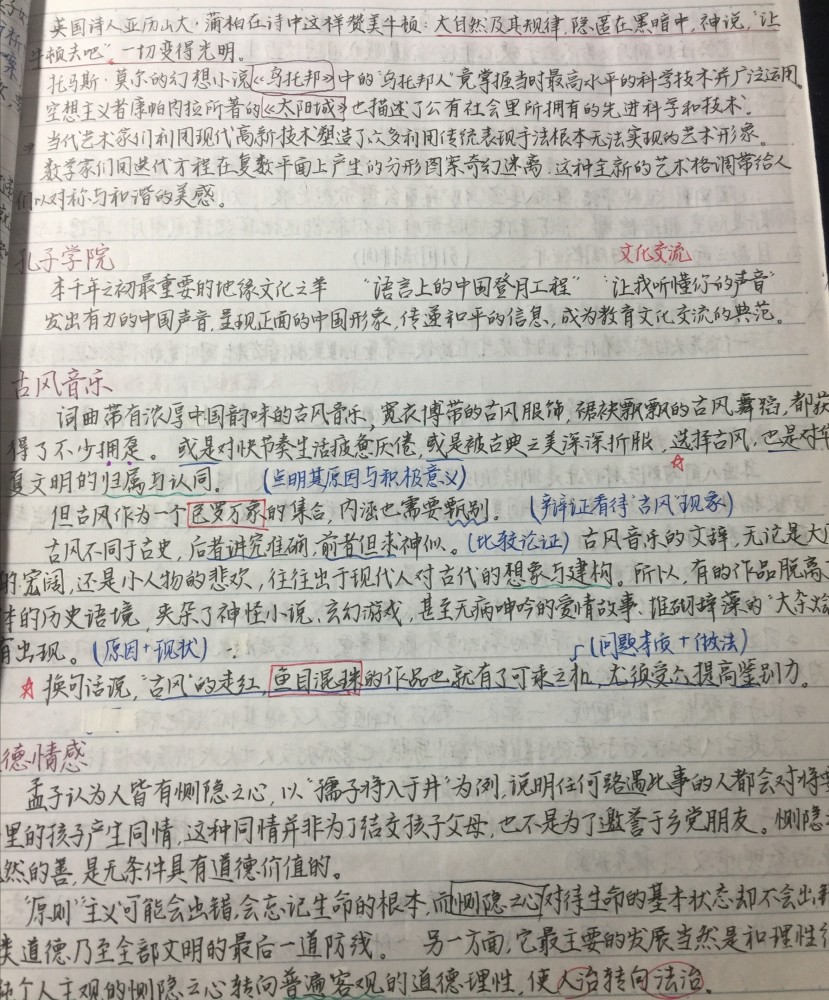 英国诗人亚历山大·蒲柏在诗中这样赞美牛顿：大自然及其规律，隐匿在黑暗中，神说，“让
牛顿去吧”，一切变得光明。
托马斯·莫尔的幻想小说《乌托邦》中的“乌托邦人”竟掌握当时最高水平的科学技术并广泛运用。
空想主义者康帕内拉所著的《太阳城》也描述了公有社会里所拥有的先进科学和技术。
当代艺术家们利用现代高新技术塑造了众多利用传统表现手法根本无法实现的艺术形象。
数学家们用迭代方程在复数平面上产生的分形图案奇幻迷离，这种全新的艺术格调带给人
们以对称与和谐的美感。
孔子学院 文化交流
本千年之初最重要的地缘文化之举 “语言上的中国登月工程” “让我听懂你的声音”
发出有力的中国声音，呈现正面的中国形象，传递和平的信息，成为教育文化交流的典范。
古风音乐
词曲带有浓厚中国韵味的古风音乐，宽衣博带的古风服饰，裾袂飘飘的古风舞蹈，都获
得了不少拥趸。或是对快节奏生活疲惫厌倦，或是被古典之美深深折服，选择古风，也是对华
夏文明的归属与认同。（点明其原因与积极意义）
但古风作为一个包罗万象的集合，内涵也需要甄别。（辩证看待“古风”现象）
古风不同于古史，后者讲究准确，前者但求神似。（比较论证）古风音乐的文辞，无论是大
的宏阔，还是小人物的悲欢，往往出于现代人对古代的想象与建构。所以，有的作品脱离
体的历史语境，夹杂了神怪小说、玄幻游戏，甚至无病呻吟的爱情故事、堆砌辞藻的“大杂烩
有出现。（原因+现状） （问题本质+做法）
换句话说，“古风”的走红，鱼目混珠的作品也就有了可乘之机，尤须受众提高鉴别力。
德情感
孟子认为人皆有恻隐之心，以“孺子将入于井”为例，说明任何路遇此事的人都会对将要
里的孩子产生同情，这种同情并非为了结交孩子父母，也不是为了邀誉于乡党朋友。恻隐
然的善，是无条件具有道德价值的。
“原则”主义可能会出错，会忘记生命的根本，而恻隐之心对待生命的基本状态却不会出
类道德乃至全部文明的最后一道防线。 另一方面，它最主要的发展当然是和理性
个人主观的恻隐之心转向普遍客观的道德理性，使人治转向法治。